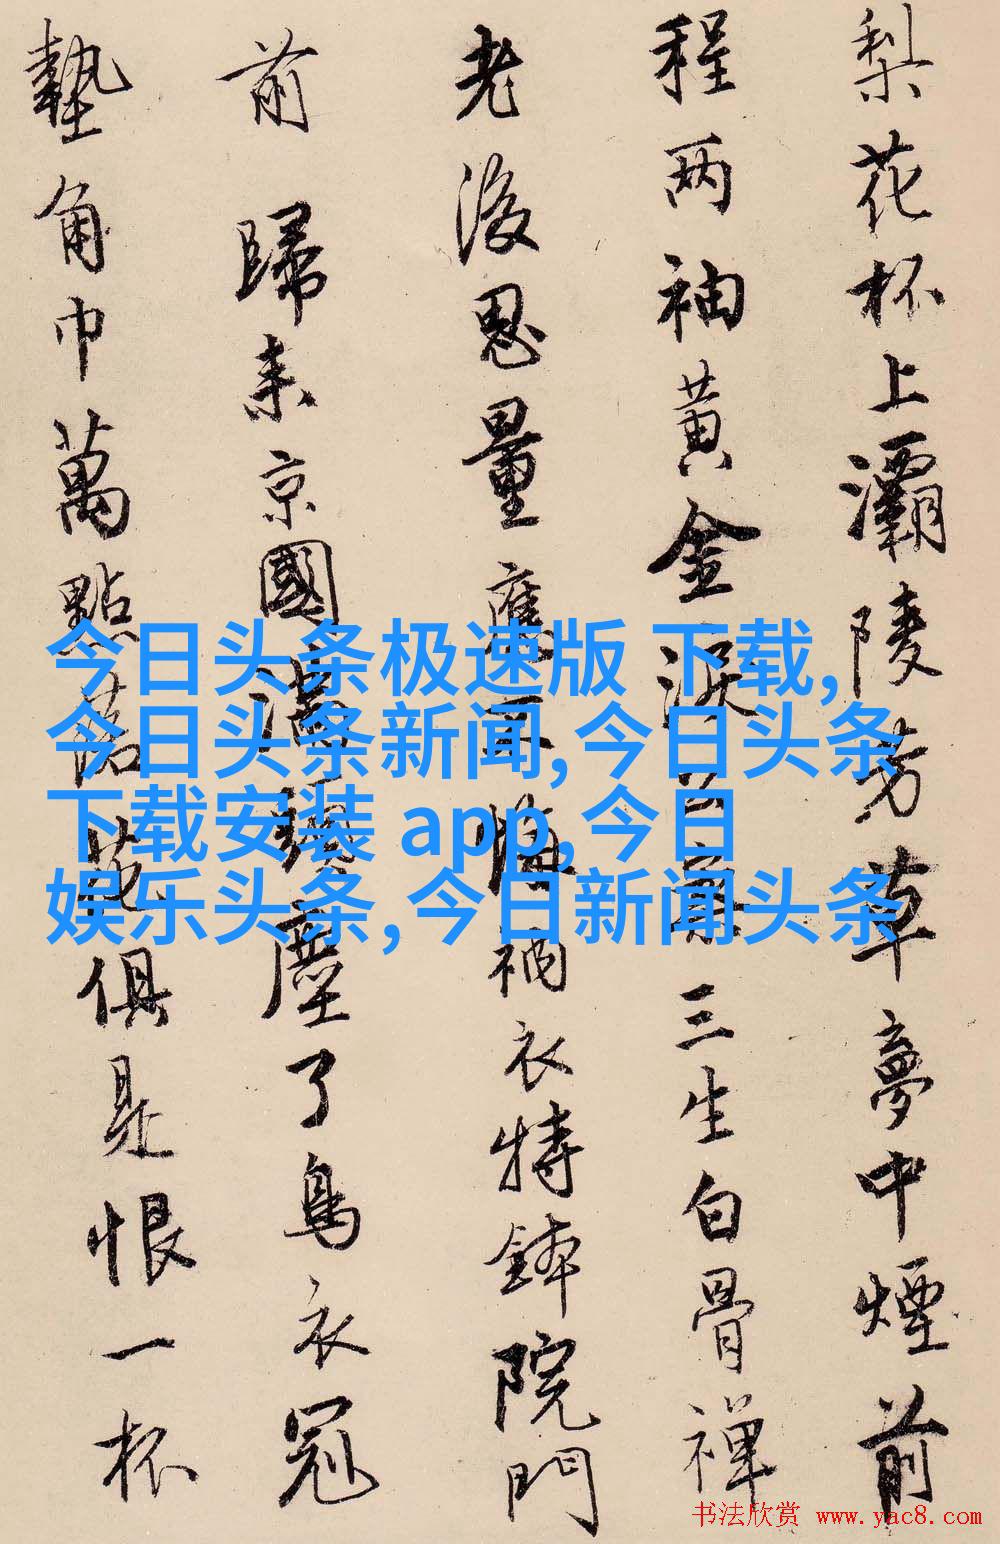 梨花杯上灞陵芳草夢中煙前
程两袖黃金淚公案三生白骨禪
老後思量應不悔衲衣持鉢院門
前歸來京國滿塵了烏衣冠
墊角巾萬點落花俱是恨一杯
今日头条极速版 下载,
今日头条新闻,今日头条
下载安装 app,今日
娱乐头条,今日新闻头条
书法欣赏 www.yac8.com